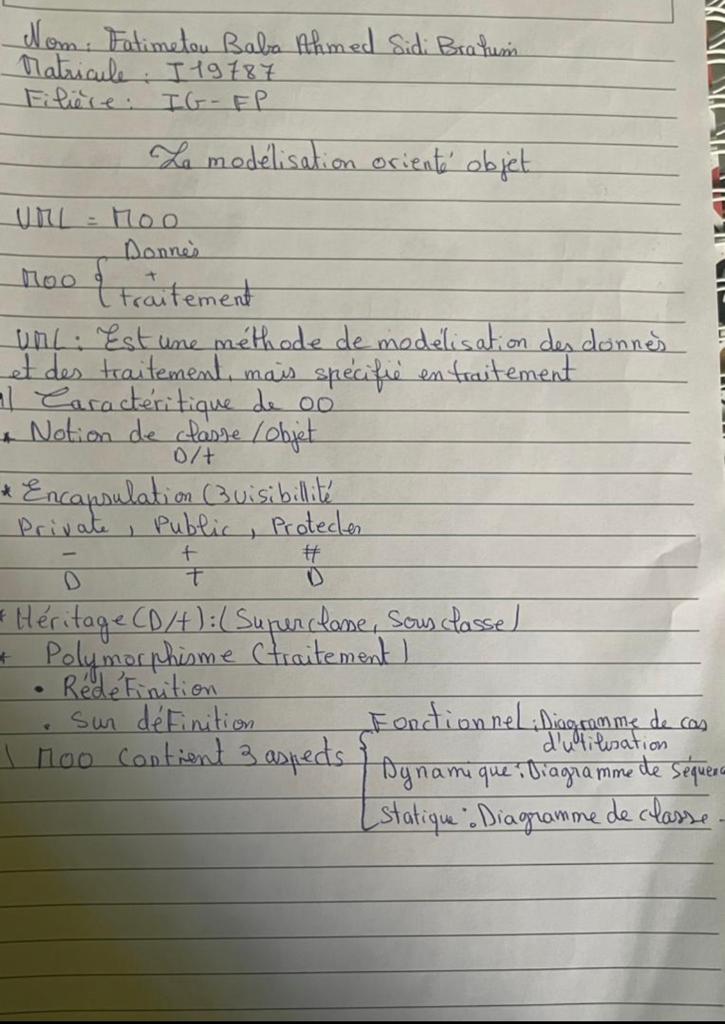 Nom : Fatimetou Baba Ahmed Sidi Brahim
Matricule : I19787
Filière : IG-FP
La modélisation orienté objet
UML = MOO
MOO { Donnès
+
traitement
UML : Est une méthode de modélisation des donnès
et des traitement, mais spécifié en traitement
1) Caractéritique de OO
* Notion de classe/Objet
D/t
* Encapsulation (3 visibillité
Private, Public, Protecter
- + #
D T D
* Héritage (D/t) : (Superclasse, Sous classe)
* Polymorphisme (traitement)
• Rédéfinition
• Sur définition
) MOO contient 3 aspects { Fonctionnel : Diagramme de cas
d'utilisation
Dynamique : Diagramme de Séquenc
Statique : Diagramme de classe.